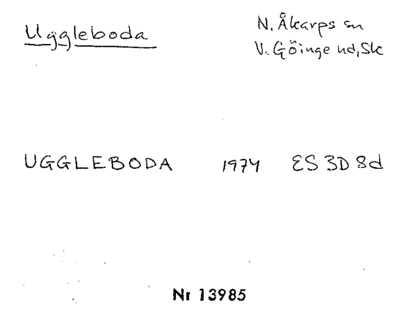 Uggleboda
N. Åkarps sn
V. Göinge hd, Sk
UGGLEBODA 1974 ES 3D 8d
Nr 13985